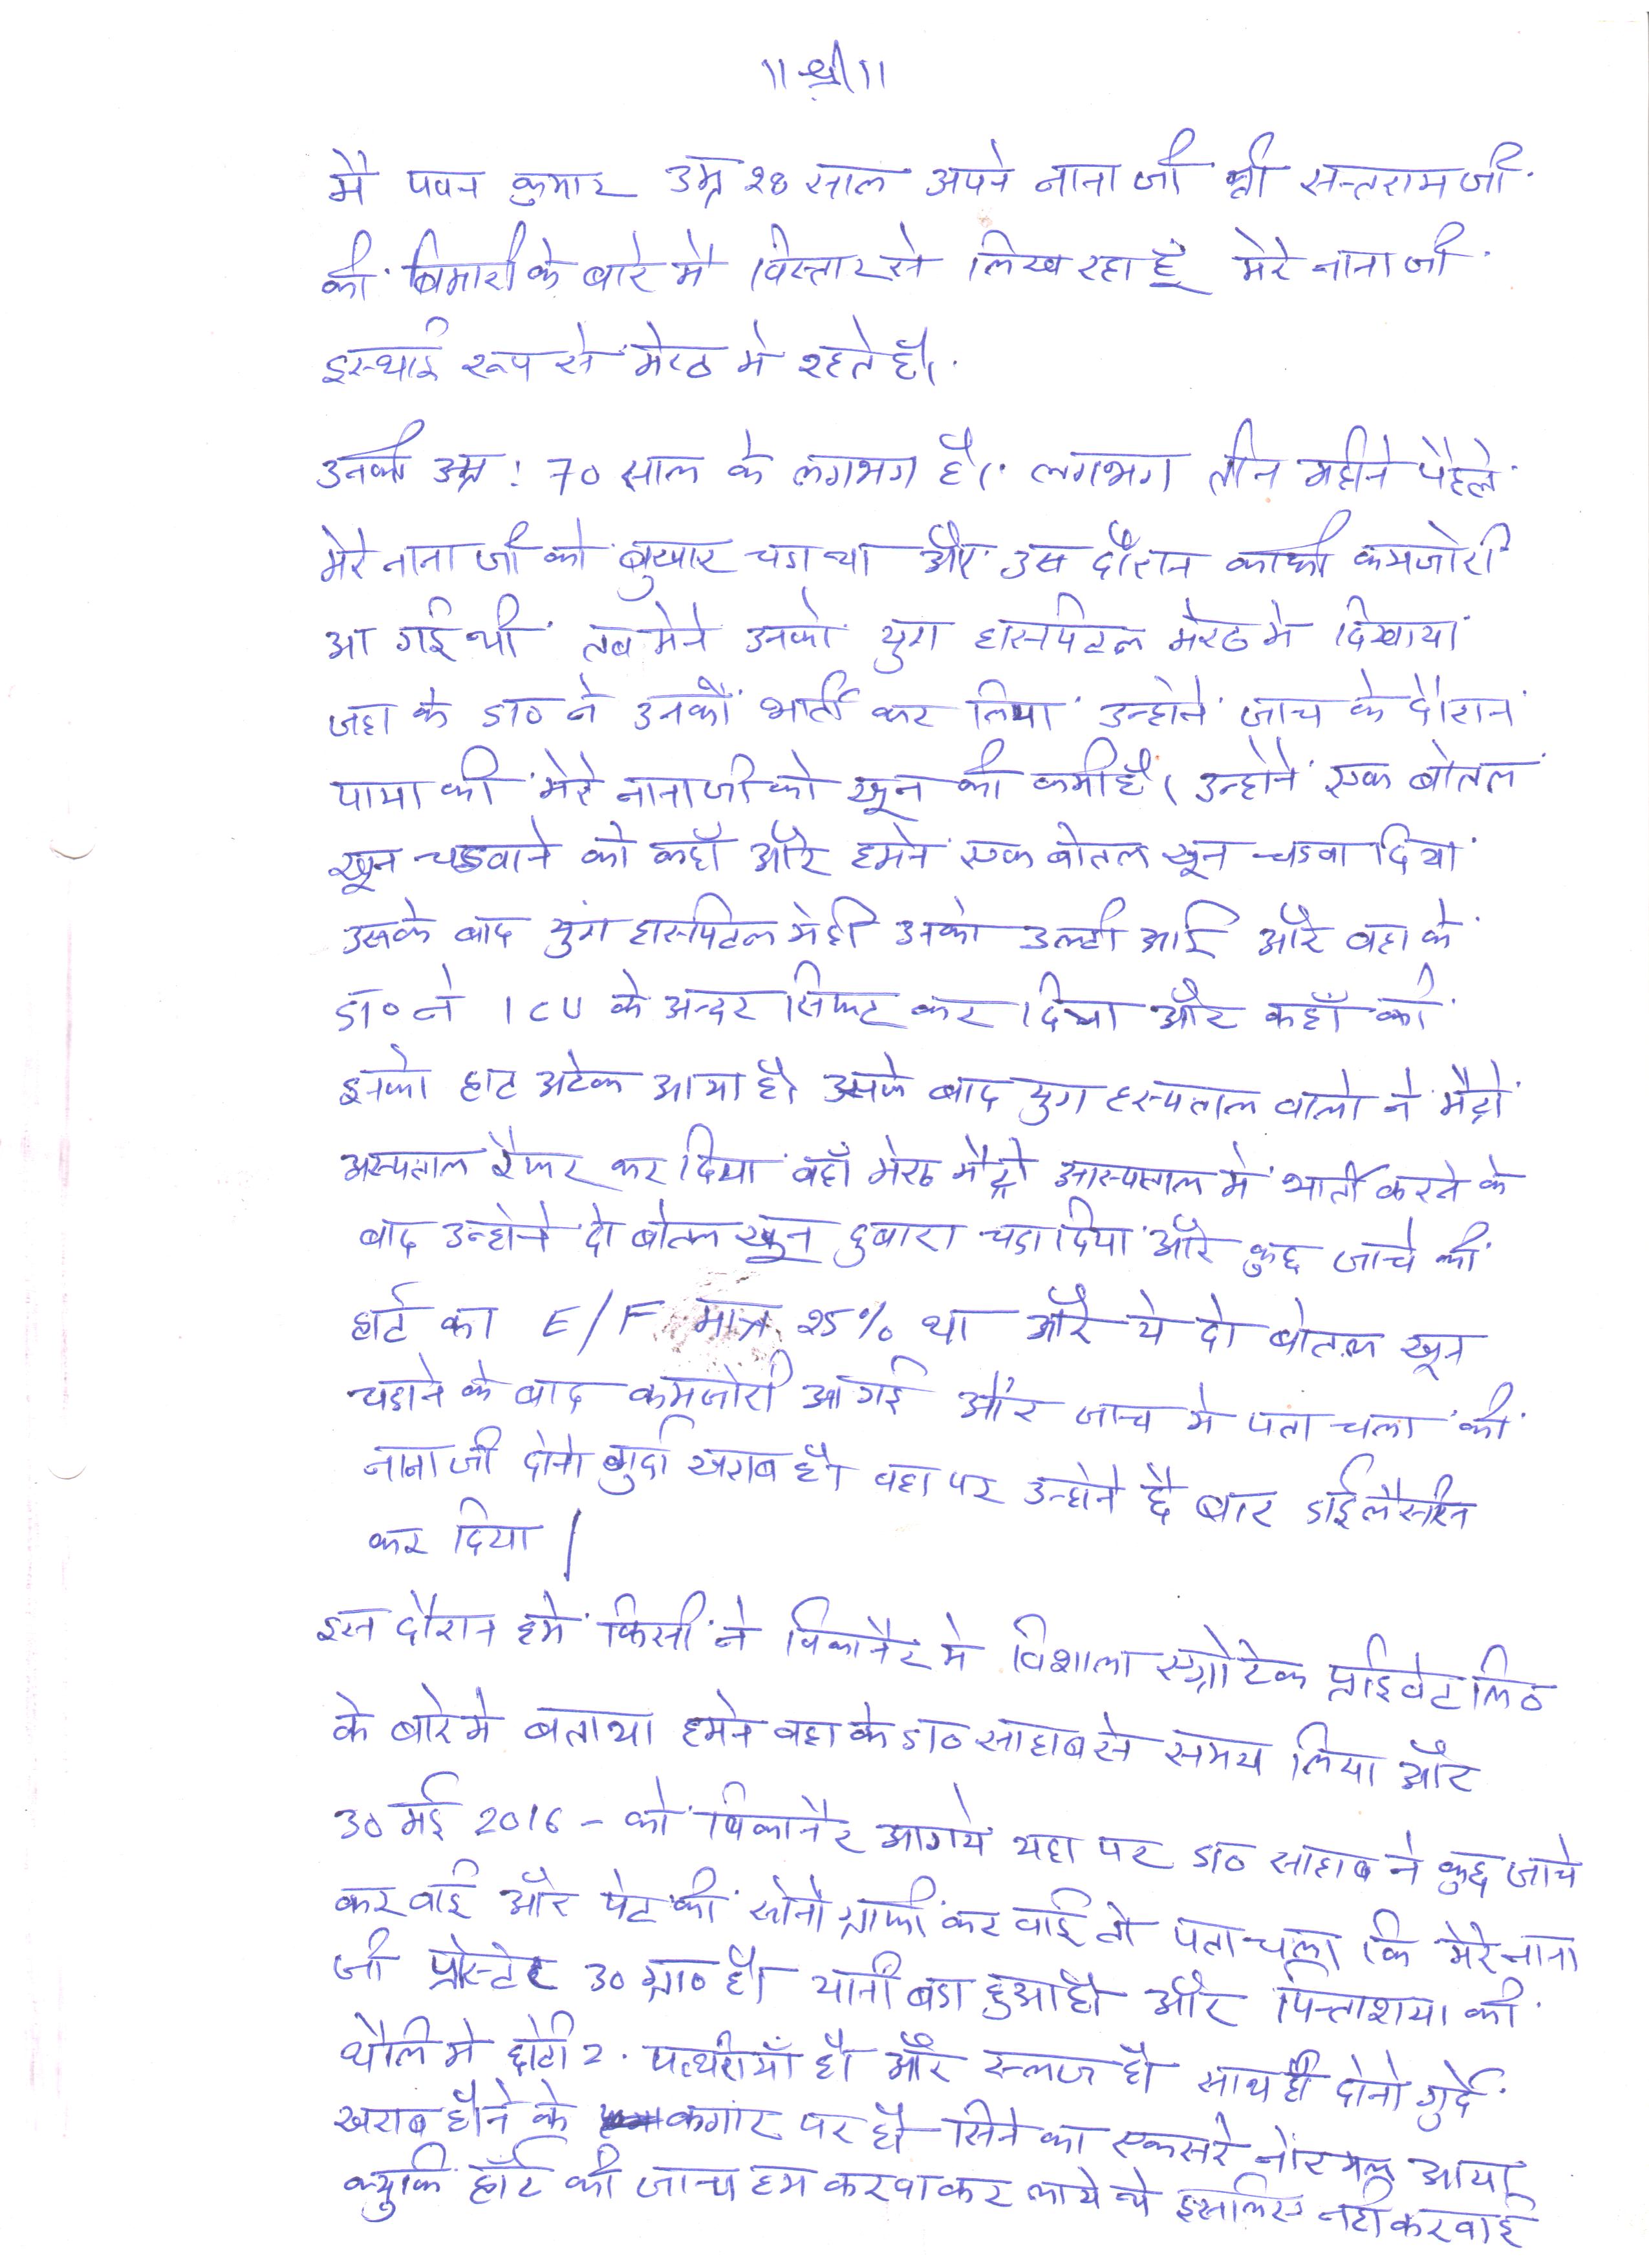 ॥ श्री ॥
मै पवन कुमार उम्र २8 साल अपने नाना जी श्री सन्तराम जी
की बिमारी के बारे मे विस्तार से लिख रहा हूँ मेरे नाना जी
इस्थाई रूप से मेरठ मे रहते है।
उनकी उम्र : 70 साल के लगभग है। लगभग तीन महीने पैहले
मेरे नाना जी को बुखार चडा था और उस दौरान काफी कमजोरी
आ गई थी तब मेने उनको युग हास्पिटल मेरठ मे दिखाया
जहा के डा० ने उनकों भर्ती कर लिया उन्होने जाच के दौरान
पाया की मेरे नाना जी को खून की कमी है। उन्होने एक बोतल
खून चडवाने को कहाँ और हमने एक बोतल खून चडवा दिया
उसके बाद युग हास्पिटल मे ही उनको उल्टी आई और वहा के
डा० ने ICU के अन्दर सिफ्ट कर दिया और कहाँ की
इनको हाट अटेक आया है। उसके बाद युग हस्पताल वालो ने मैट्रो
अस्पताल रैफर कर दिया वहाँ मेरठ मैट्रो आस्पताल मे भर्ती करने के
बाद उन्होने दो बोतल खून दुबारा चडा दिया और कुछ जाचे की
हार्ट का E/F मात्र २5% था और ये दो बोतल खून
चडाने के बाद कमजोरी आ गई और जाच मे पता चला की
नाना जी दोनो गुर्दा खराब है। वहा पर उन्होने छै बार
कर दिया |
इस दौरान हमे किसी ने विकानैर मे विशाला एग्रोटेक प्राईवेट लि०
के बारे मे बताया हमने वहा के डा० साहाब से समय लिया और
30 मई 2016 - को विकानैर आगये यहा पर डा० साहाब ने कुछ जाचे
करवाई और पेट की सोनोग्राफी करवाई तो पता चला कि मेरे नाना
जी प्रोस्टेट 30 ग्रा० है। यानी बडा हुआ है। और पित्ताशया की
थैलि मे छोटी २. पत्थरीयाँ है। और स्लज है। साथ ही दोनो गुर्दे
खराब होने के कगार पर है। सिने का एकसरे नोरमल आया
क्युकि हॉर्ट की जाच हम करवा कर लाये थे इसलिए नही करवाई